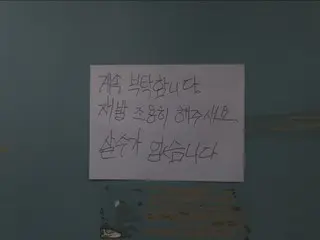 계속 부탁합니다
재발 조용히 해주세요
살수가 없습니다